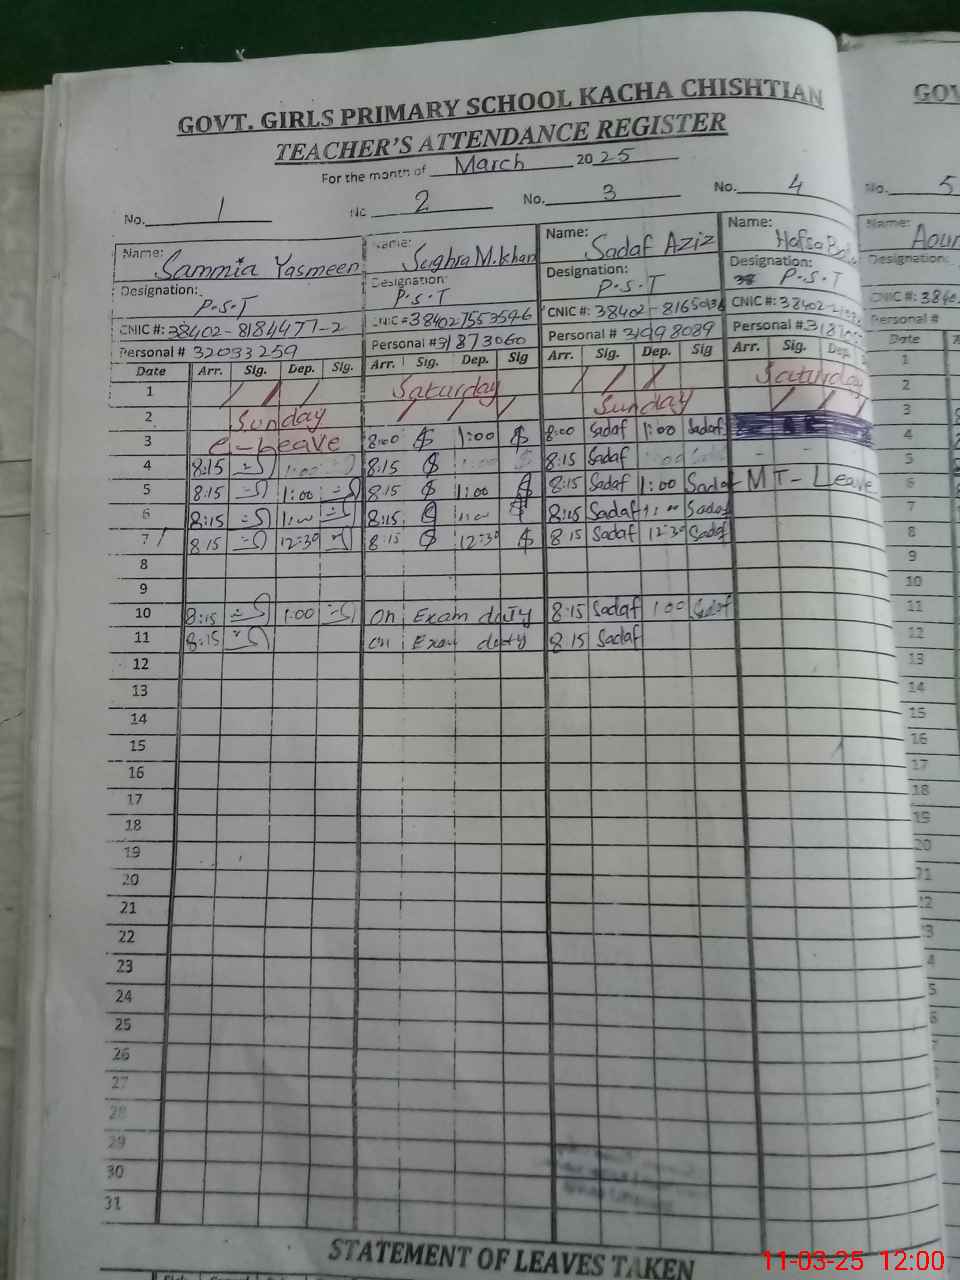 GOVT. GIRLS PRIMARY SCHOOL KACHA CHISHTIAN GOV
TEACHER'S ATTENDANCE REGISTER
For the month of March 2025
No. 1 No 2 No. 3 No. 4 No. 5
Name: Sammia Yasmeen Name: Sughra M.Khan Name: Sadaf Aziz Name: Hafsa Name: Aoun
Designation: P.S.T Designation: P.S.T Designation: P.S.T Designation: P.S.T Designation:
CNIC #: 38402-8184477-2 CNIC # 384027553596 CNIC #: 38402-8165 CNIC #: 38402- CNIC #: 3840
Personal # 32033259 Personal # 31873060 Personal # 31998089 Personal #: 318 Personal #
Date Arr. Sig. Dep. Sig. Arr. Sig. Dep. Sig Arr. Sig. Dep. Sig Arr. Sig. Dep. Date
1 / / / Saturday / / / Saturday 1
2 Sunday / / / Sunday / / / 2
3 C-Leave 8:00 $ 1:00 $ 8:00 Sadaf 1:00 Sadaf 3
4 8:15 1:00 8:15 $ 1:00 $ 8:15 Sadaf 1:00 Sadaf - - - 4
5 8:15 1:00 8:15 $ 1:00 $ 8:15 Sadaf 1:00 Sadaf MT- Leave 5
6 8:15 1:00 8:15 $ 1:00 $ 8:15 Sadaf 1:00 Sadaf 6
7 8 15 12:30 8:15 $ 12:30 $ 8 15 Sadaf 12:30 Sadaf 7
8 8
9 9
10 8:15 1:00 On Exam duty 8:15 Sadaf 1 00 Sadaf 10
11 8:15 on Exam duty 8 15 Sadaf 11
12 12
13 13
14 14
15 15
16 16
17 17
18 18
19 19
20 20
21 21
22
23
24
25
26
27
28
29
30
31
STATEMENT OF LEAVES TAKEN
11-03-25 12:00